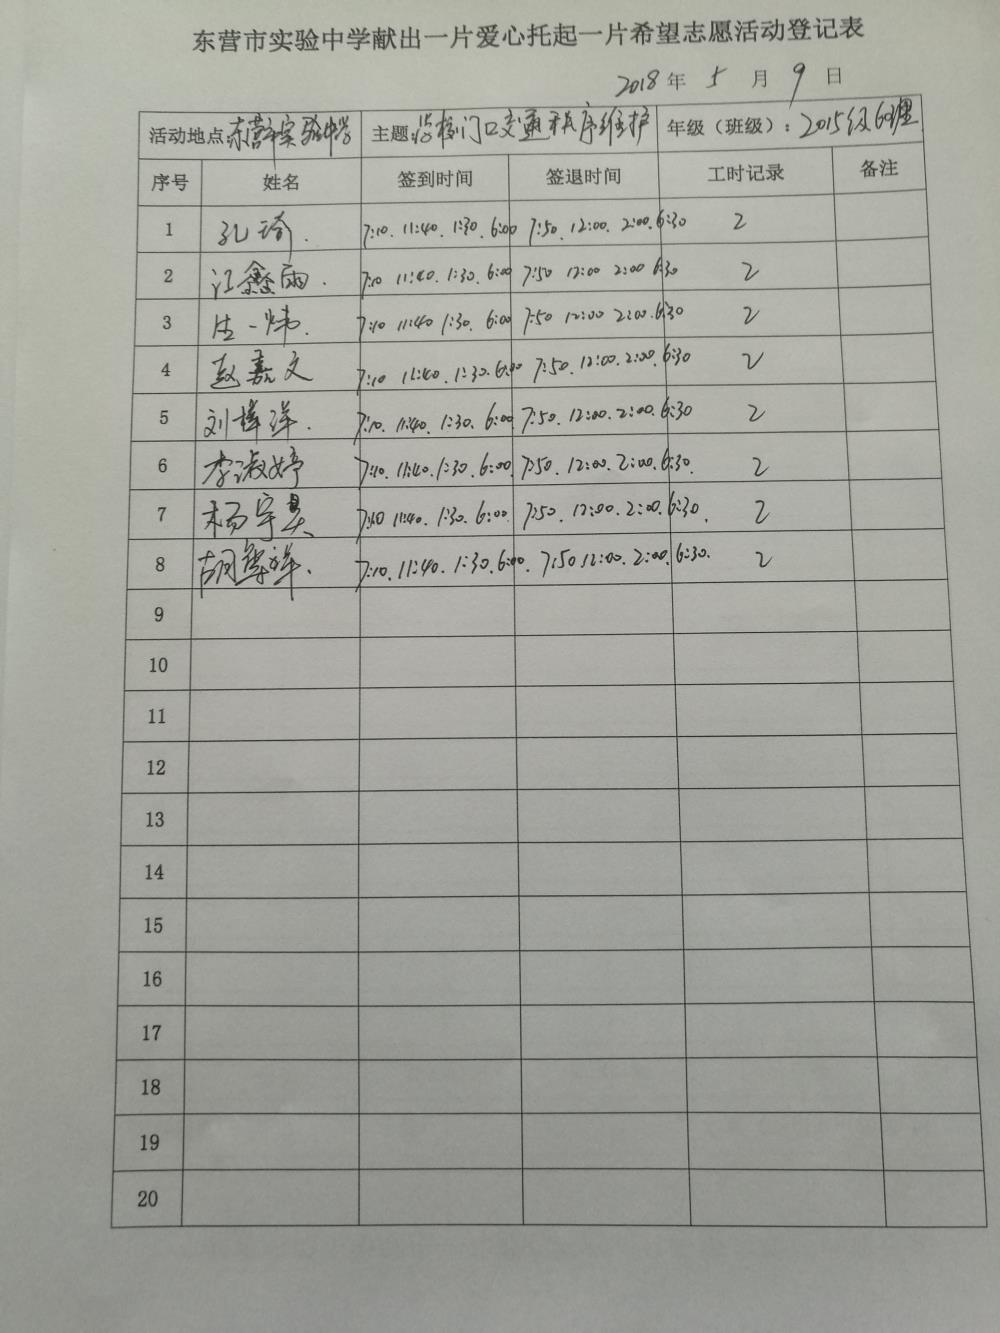 东营市实验中学献出一片爱心托起一片希望志愿活动登记表
2018年 5 月 9 日
活动地点:东营市实验中学 主题:学校门口交通秩序维护 年级（班级）:2015级
序号 姓名 签到时间 签退时间 工时记录 备注
1 孔琦. 7:10. 11:40. 1:30. 6:00 7:50. 12:00. 2:00. 6:30 2
2 江鑫雨. 7:10 11:40. 1:30. 6:00 7:50 12:00 2:00 6:30 2
3 一炜. 7:10 11:40 1:30. 6:00 7:50 12:00 2:00. 6:30 2
4 赵嘉文 7:10 11:40. 1:30. 6:00 7:50. 12:00. 2:00. 6:30 2
5 刘梓洋. 7:10. 11:40. 1:30. 6:00 7:50. 12:00. 2:00. 6:30 2
6 李淑婷 7:10. 11:40. 1:30. 6:00 7:50. 12:00. 2:00. 6:30. 2
7 杨宇昊 7:10 11:40. 1:30. 6:00. 7:50. 12:00. 2:00. 6:30. 2
8 胡 祥. 7:10. 11:40. 1:30. 6:00. 7:50 12:00. 2:00. 6:30. 2
9
10
11
12
13
14
15
16
17
18
19
20